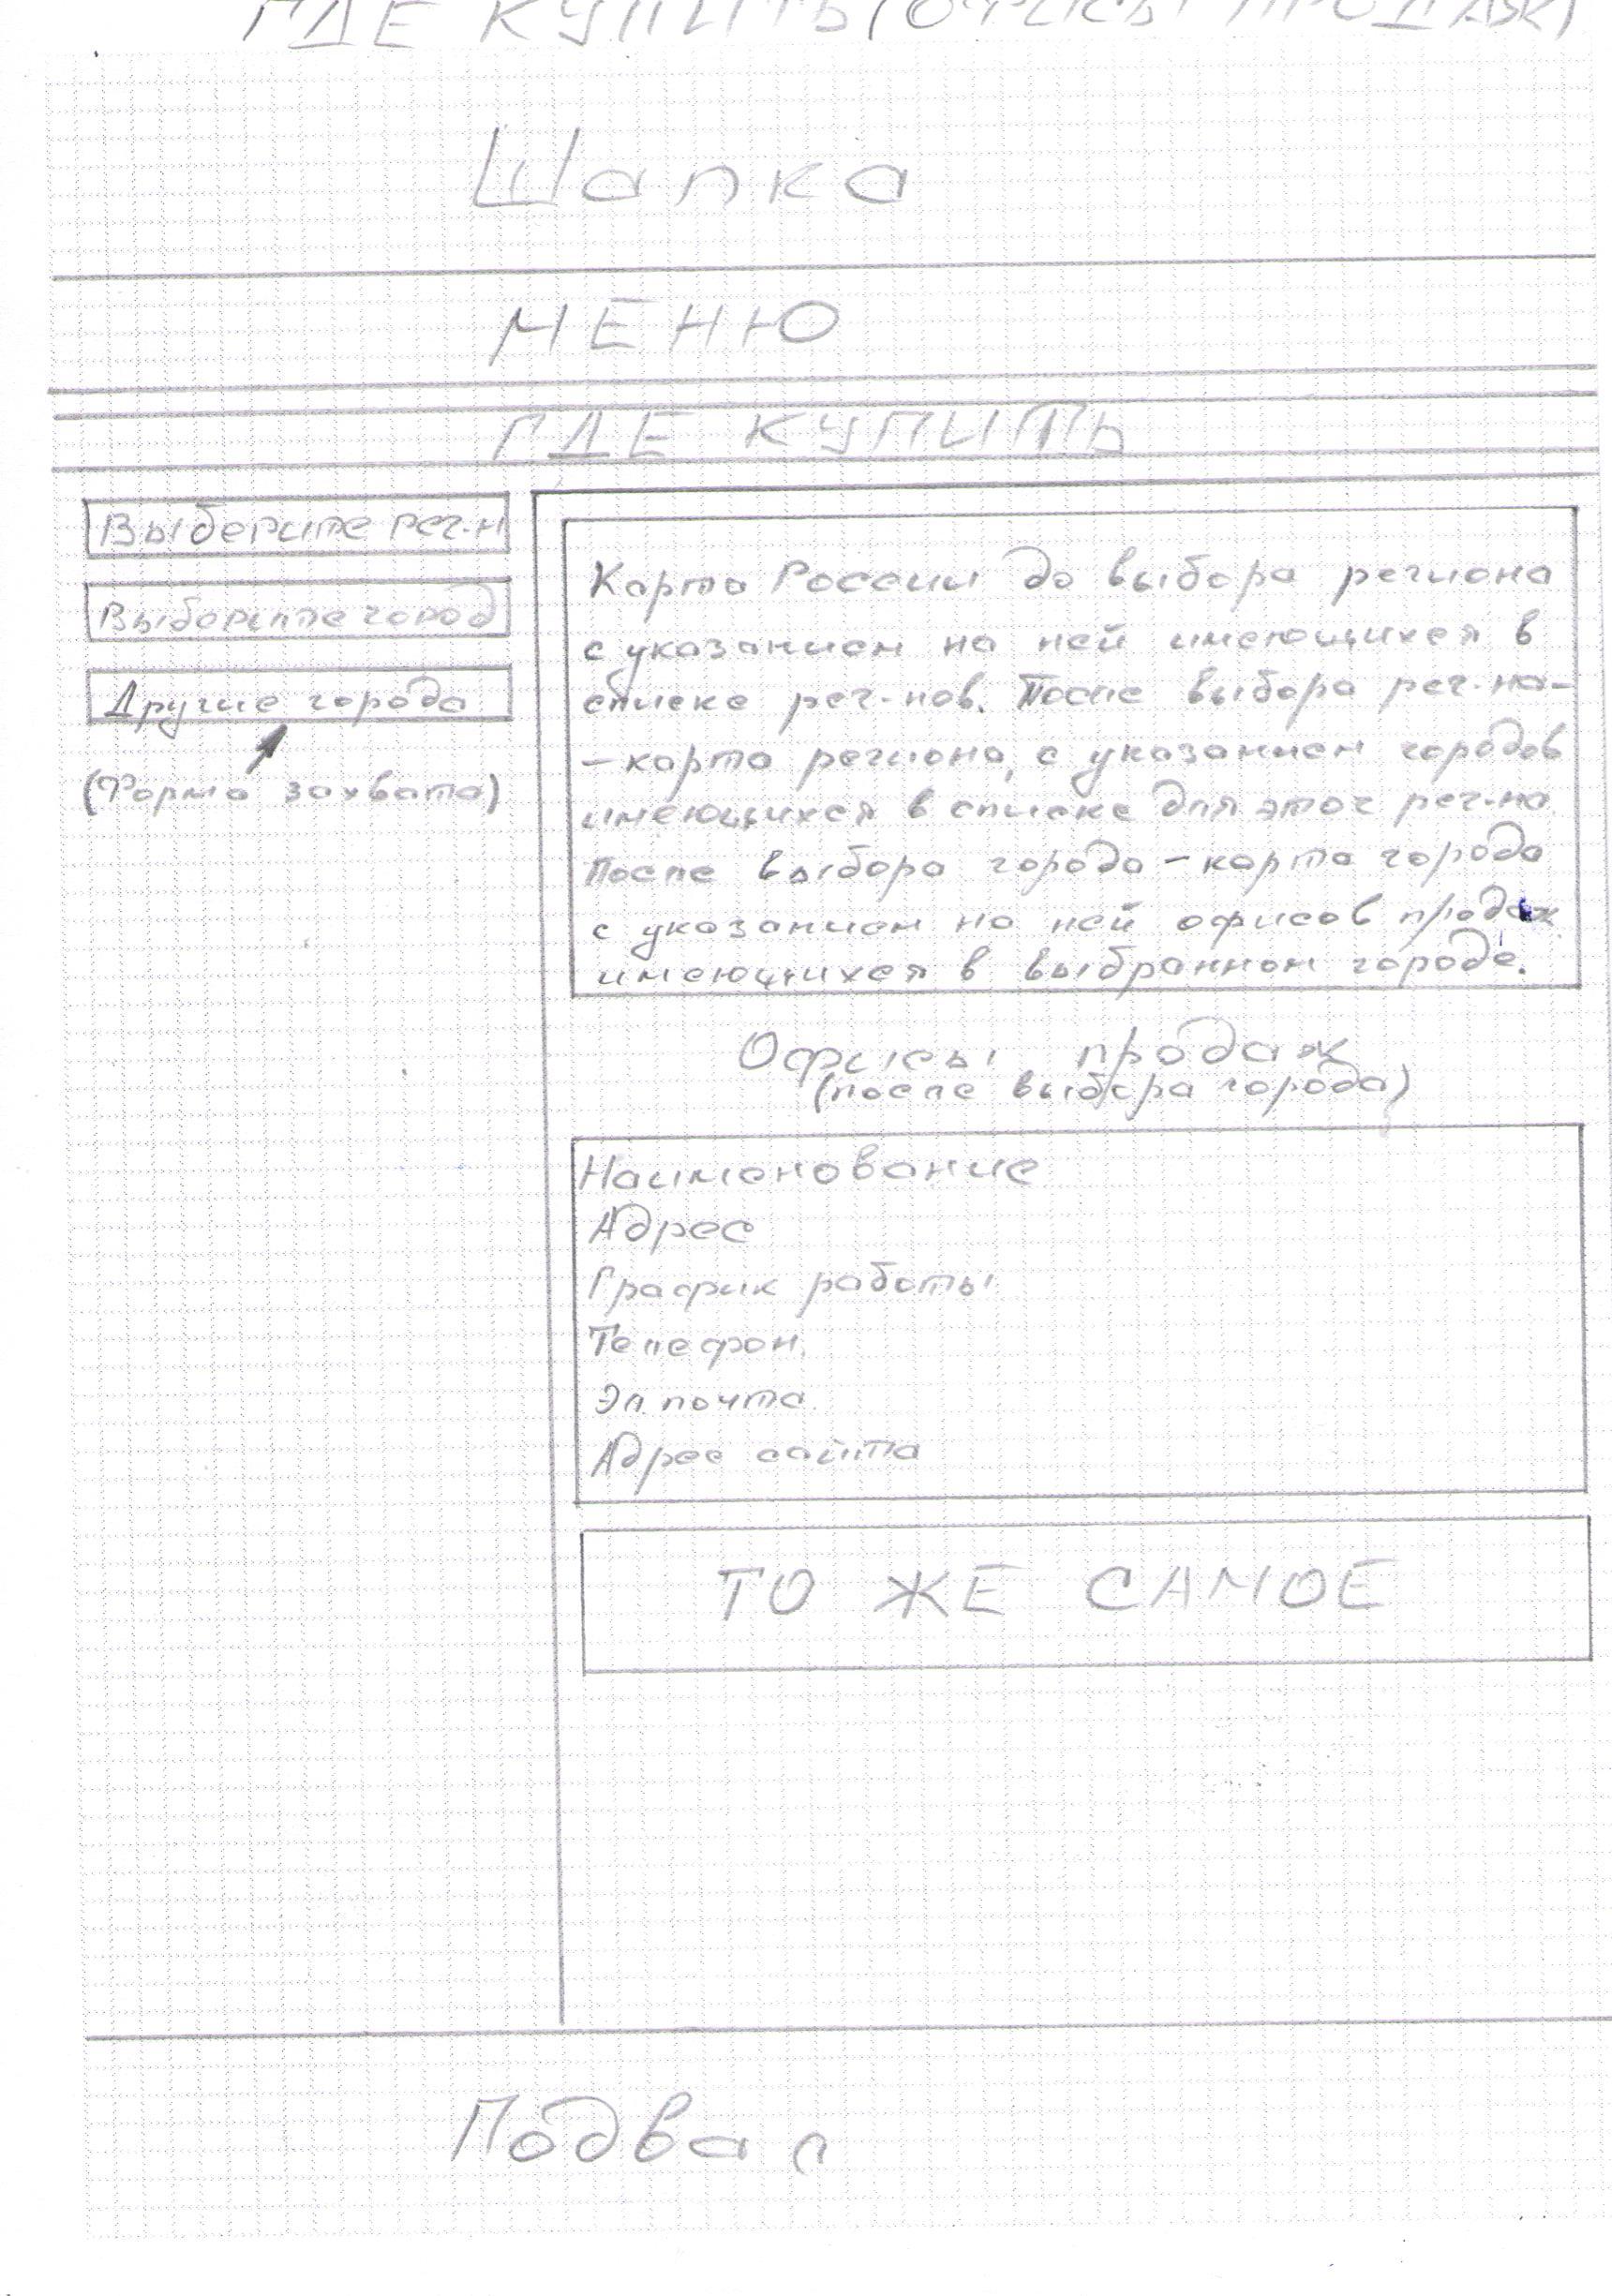 ГДЕ КУПИТЬ (ОФИСЫ ПРОДАЖ)
Шапка
МЕНЮ
ГДЕ КУПИТЬ
Выберите рег-н
Выберите город
Другие города
(Форма захвата)
Карта России до выбора региона
с указанием на ней имеющихся в
списке рег-нов. После выбора рег-на-
-карта региона, с указанием городов
имеющихся в списке для этог рег-на.
После выбора города - карта города
с указанием на ней офисов продаж
имеющихся в выбранном городе.
Офисы продаж
(после выбора города)
Наименование
Адрес
График работы
Телефон.
Эл. почта.
Адрес сайта
ТО ЖЕ САМОЕ
Подвал